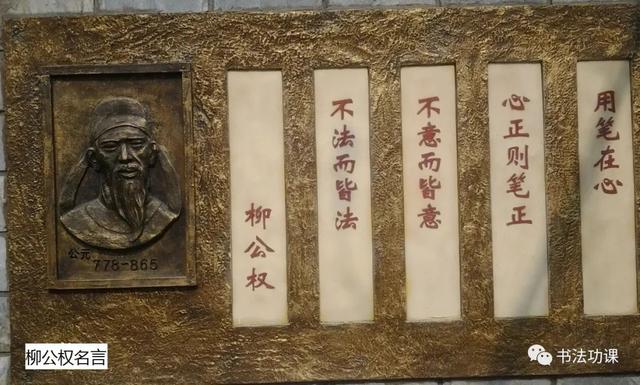 用笔在心
心正则笔正
不意而皆意
不法而皆法
柳公权
公元
778-865
柳公权名言
书法功课